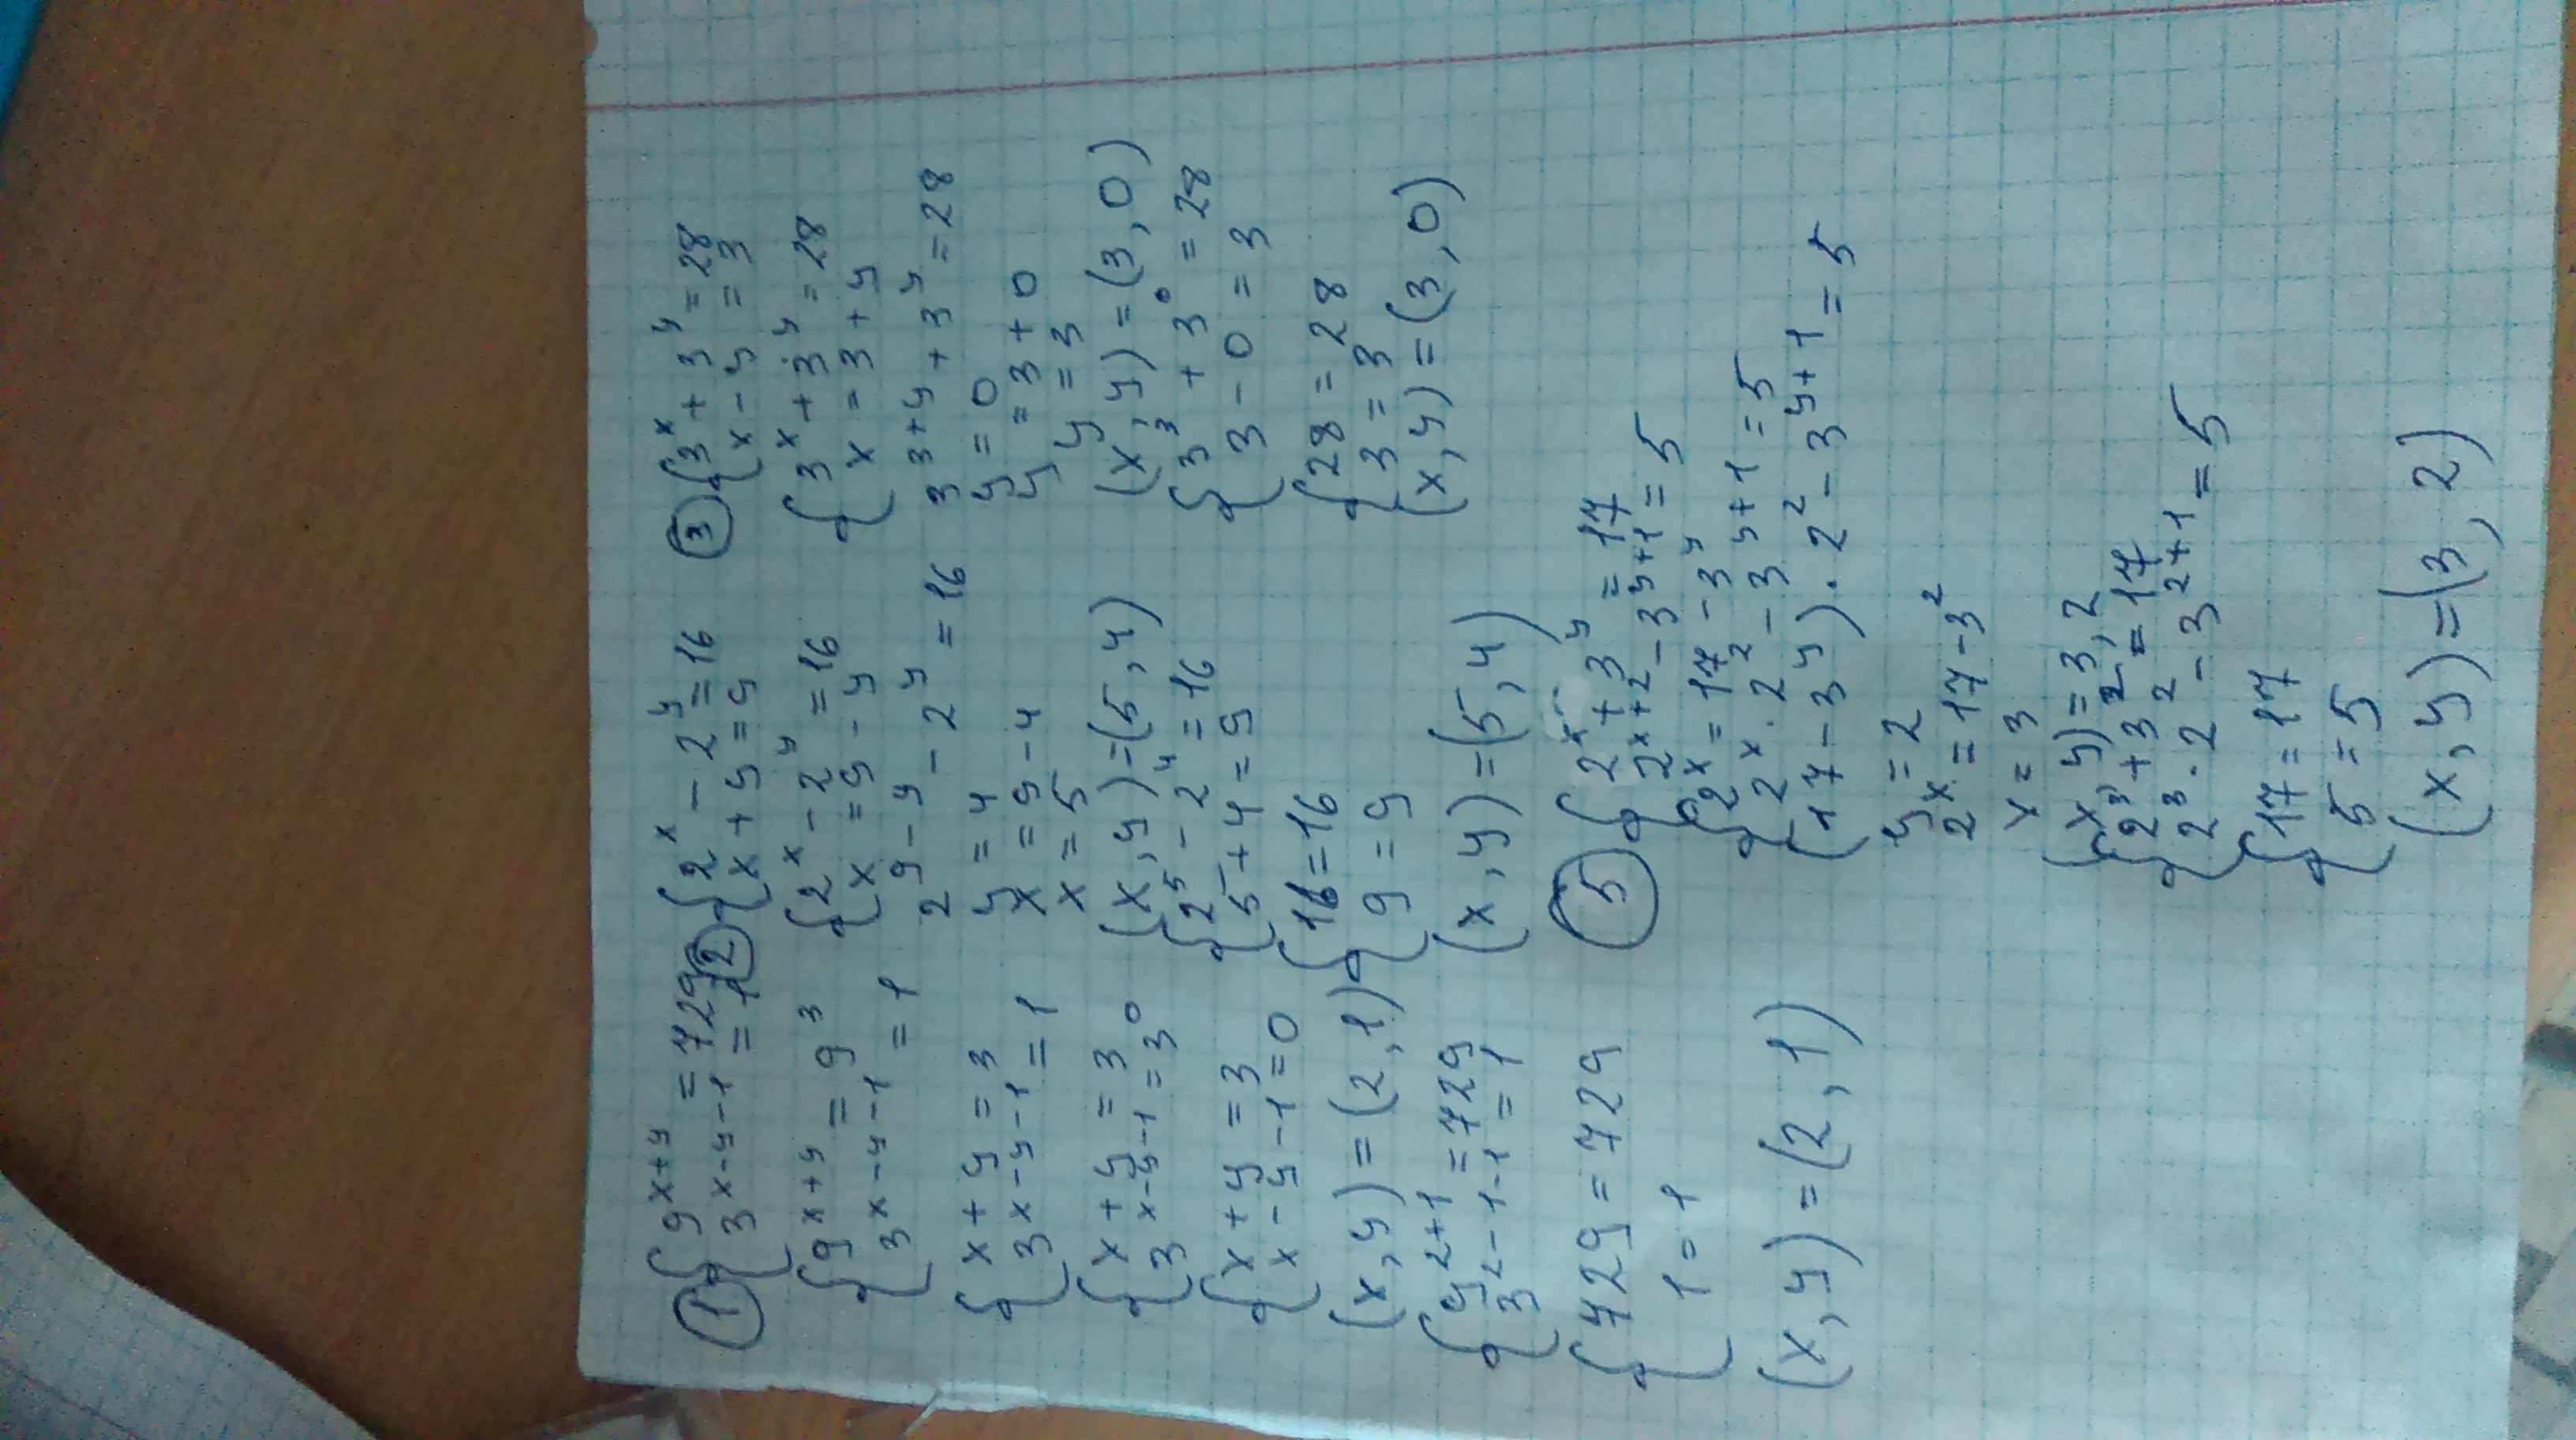 ① { 9^(x+y) = 729
3^(x-y-1) = 1
{ 9^(x+y) = 9^3
3^(x-y-1) = 1
{ x+y = 3
3^(x-y-1) = 1
{ x+y = 3
3^(x-y-1) = 3^0
{ x+y = 3
x-y-1 = 0
(x,y) = (2,1)
{ 9^(2+1) = 729
3^(2-1-1) = 1
{ 729 = 729
1 = 1
(x,y) = (2,1)
② { 2^x - 2^y = 16
x+y = 9
{ 2^x - 2^y = 16
x = 9-y
2^(9-y) - 2^y = 16
y = 4
x = 9-4
x = 5
(x,y) = (5,4)
{ 2^5 - 2^4 = 16
5+4 = 9
{ 16 = 16
9 = 9
(x,y) = (5,4)
③ { 3^x + 3^y = 28
x-y = 3
{ 3^x + 3^y = 28
x = 3+y
3^(3+y) + 3^y = 28
y = 0
y = 3+0
y = 3
(x,y) = (3,0)
{ 3^3 + 3^0 = 28
3-0 = 3
{ 28 = 28
3 = 3
(x,y) = (3,0)
⑤ { 2^x + 3^y = 17
2^(x+2) - 3^(y+1) = 5
{ 2^x = 17 - 3^y
2^x · 2^2 - 3^(y+1) = 5
(17 - 3^y) · 2^2 - 3^(y+1) = 5
y = 2
2^x = 17 - 3^2
x = 3
(x,y) = 3,2
{ 2^3 + 3^2 = 17
2^3 · 2^2 - 3^(2+1) = 5
{ 17 = 17
5 = 5
(x,y) = (3,2)